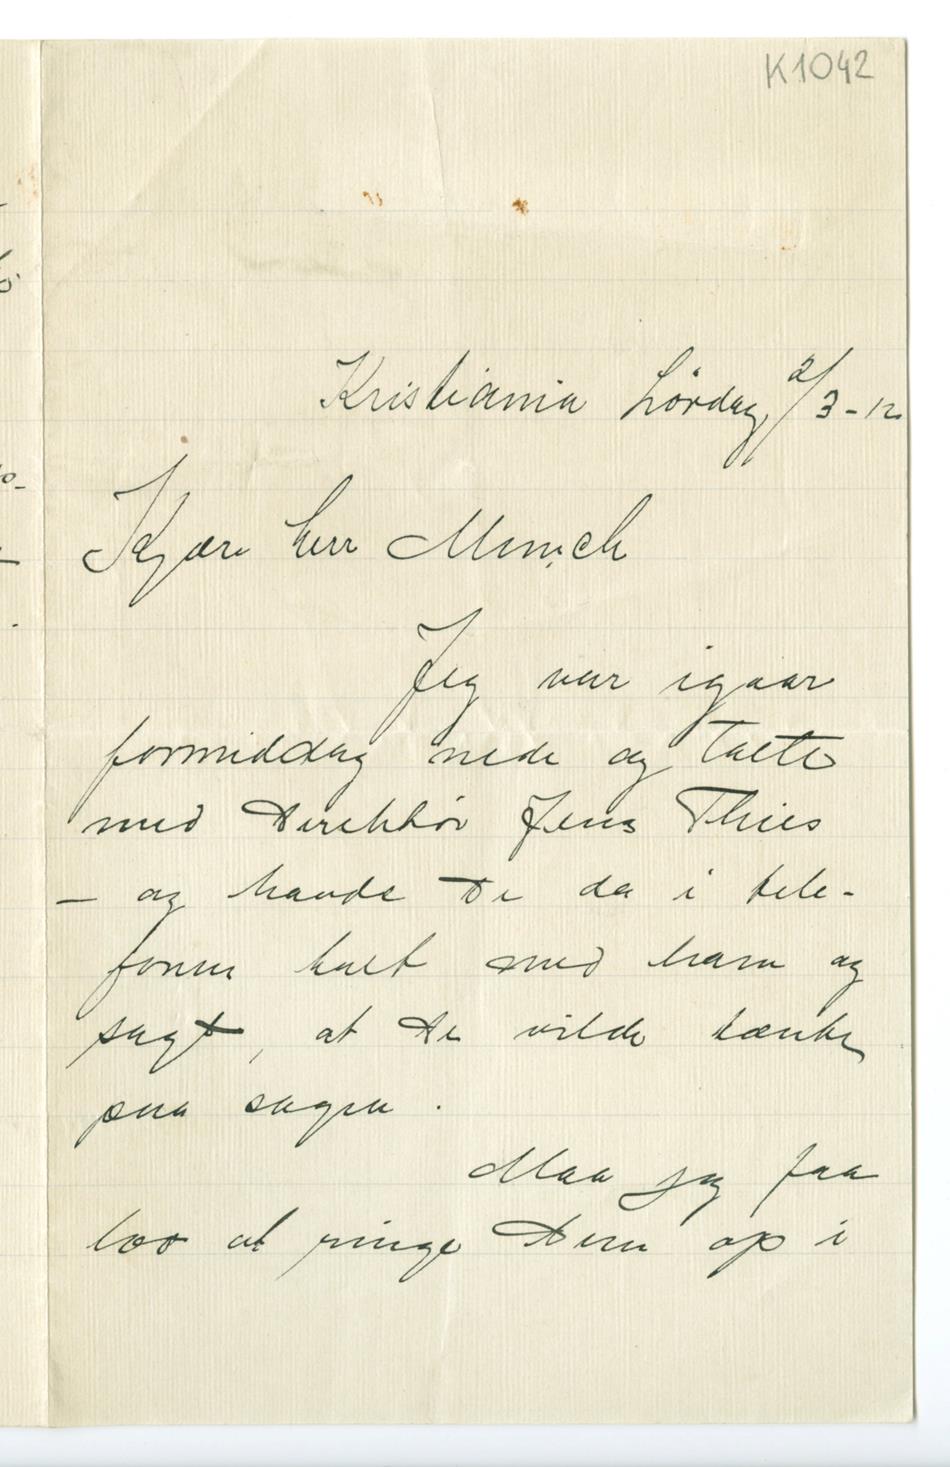 K1042
Kristiania Lördag 2/3-12
Kjære herr Munch
Jeg var igaar
formiddag nede og talte
med Direktör Jens Thies
– og havde De da i tele-
fonen talt med ham og
sagt, at De vilde tænke
paa sagen.
Maa jeg faa
lov at ringe Dem op i